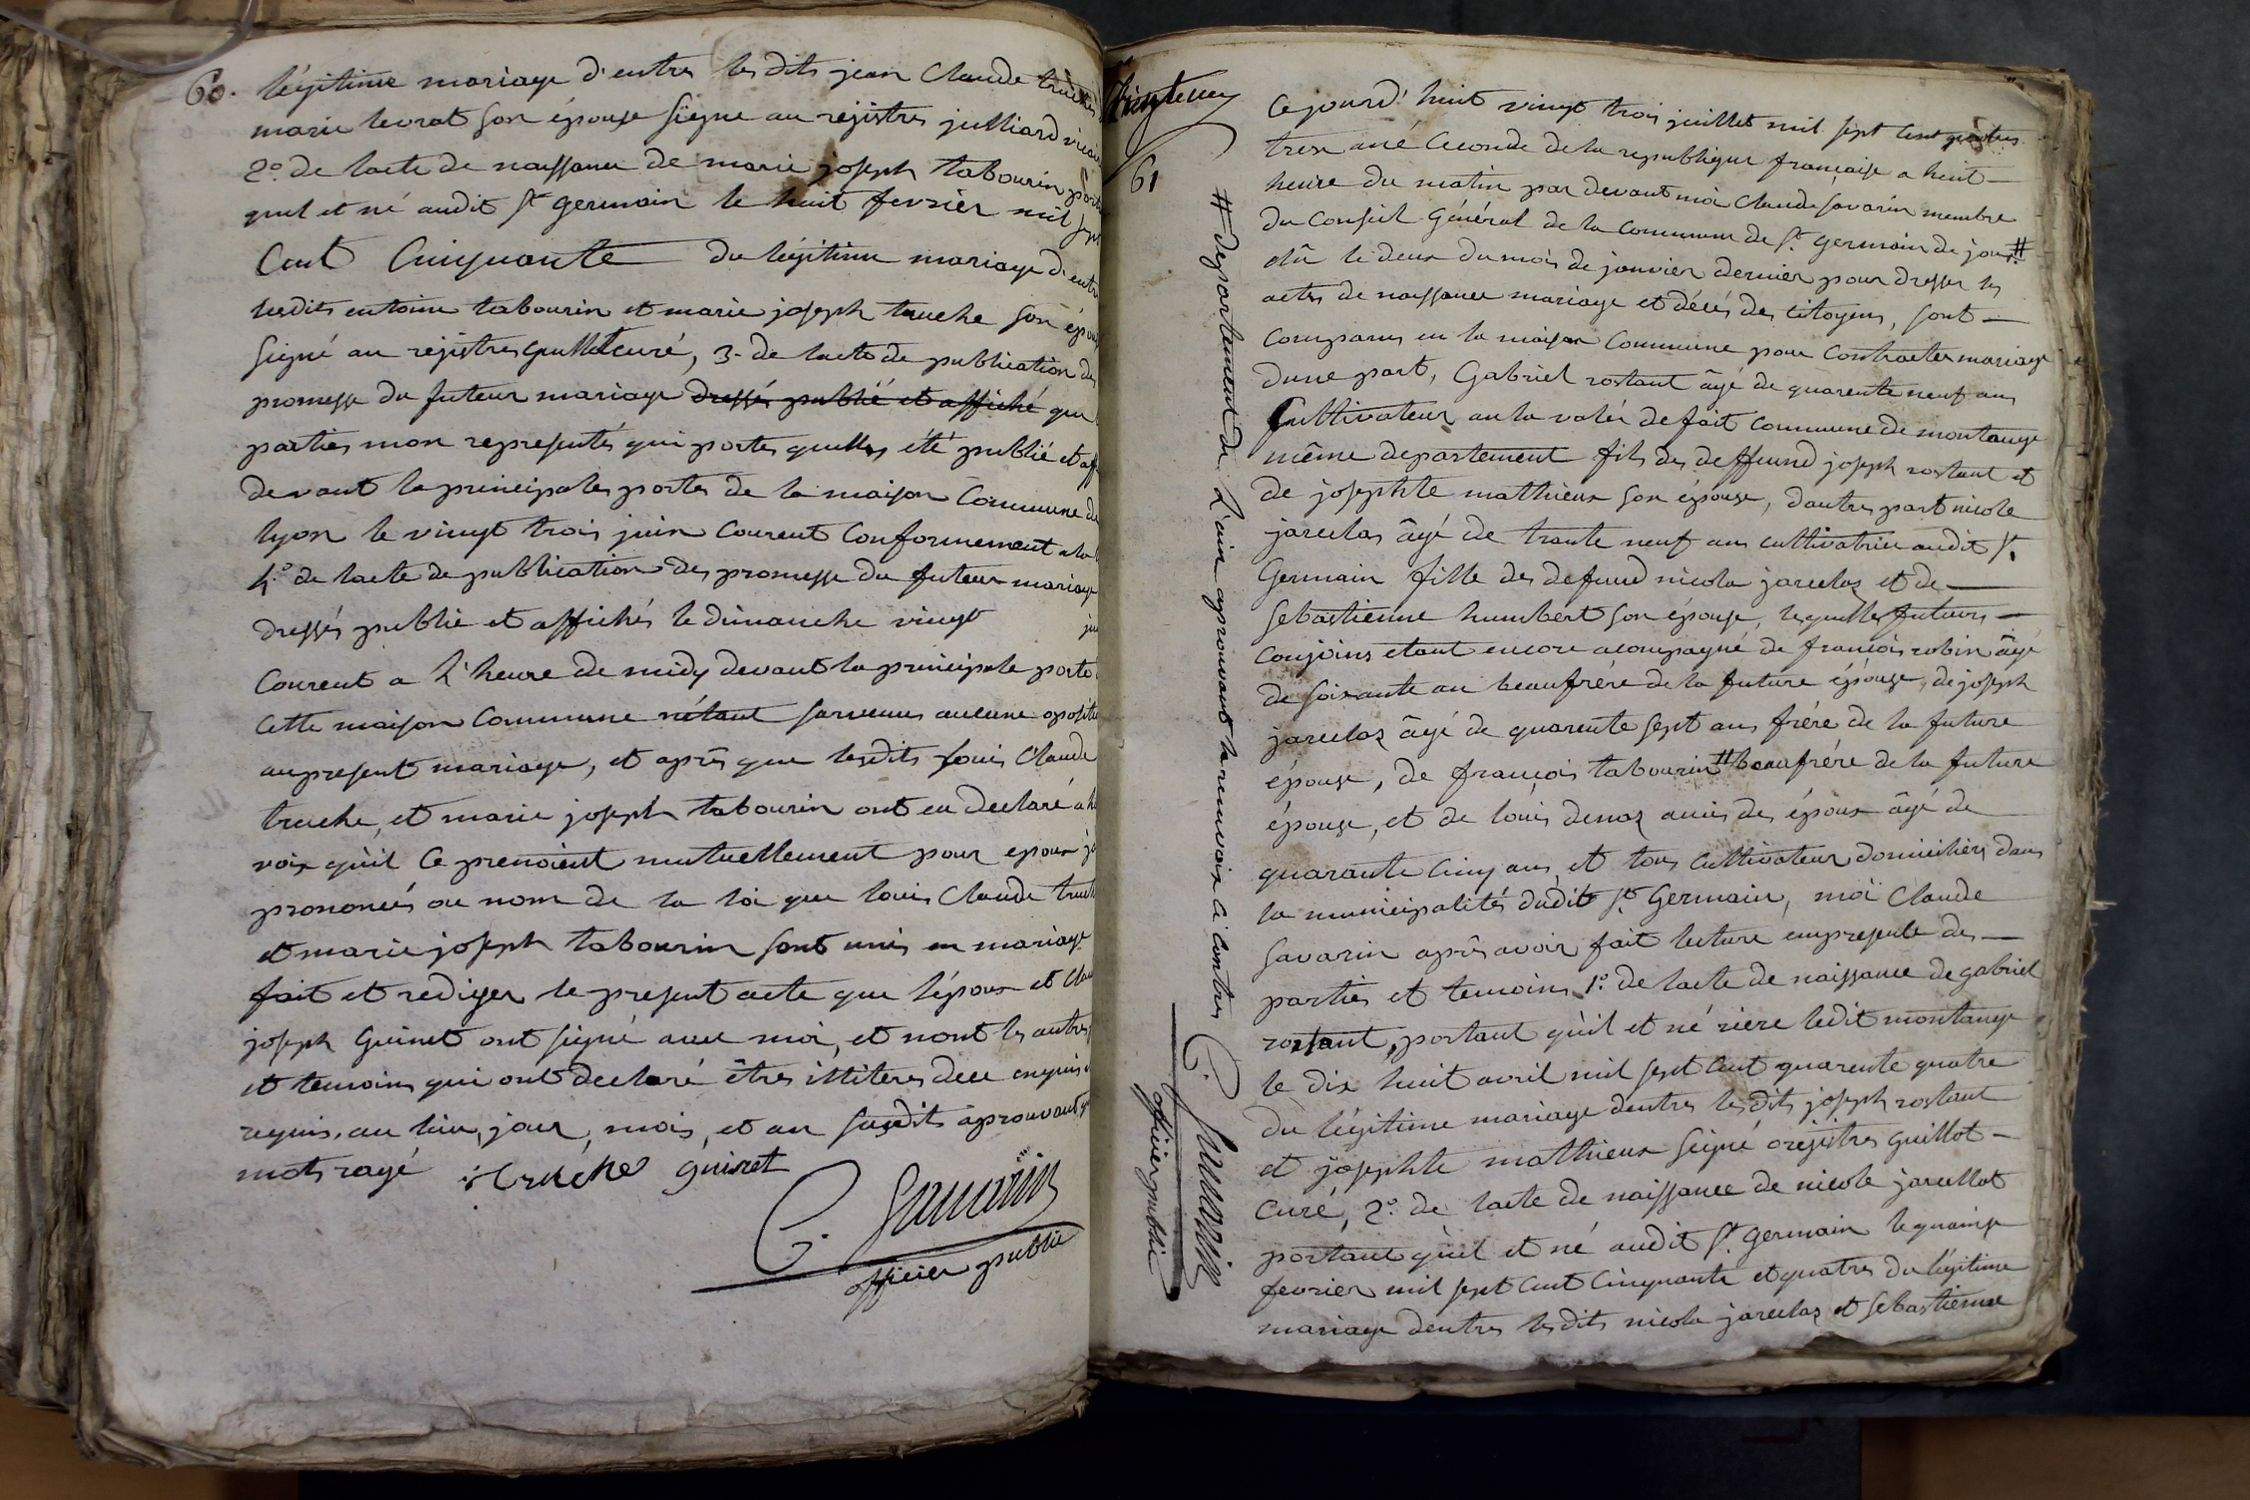 60. légitime mariage d'entres lesdits jean Claude truche
marie levrat son épouse signe au régistres julliard vicai
2.° de lacte de naissance de marie joseph tabourin porta
quel et né audit St germain le huit fevrier mil sept
Cent Cinquante du légitime mariage d'entre
lesdits entoine tabourin et marie joseph truche son épou
signé au régistres Guillot curé, 3. de lacte de publication des
promesse du futeur mariage dressés publié et affiché que
parties mon representés qui portes quelles été publié et aff
devant la principales portes de la maison Commune de
lyon le vingt trois juin Courent Conformement a la
4.° de lacte de publication des promesse du futeur mariage
dressés publié et affichés le dimanche vingt
Courent a l'heure de midy devant la principale porte
Cette maison Commune n'étant survenus aucune opositi
au present mariage, et après que lesdits Louis Claude
truche, et marie joseph tabourin ont eu declaré a h
voix qu'il Ce prenoient mutuellement pour epoux
prononcés au nom de la loi que louis Claude truch
et marie joseph tabourin sont unis en mariage
fait et rediger le present acte que l'époux et Clau
joseph Guinet ont signé avec moi, et nont les autres
et temoins qui ont declaré êtres illiteres deue enquis
requis. au lieu, jour, mois, et an susdits aprouvant
mots rayé truche guinet
C. Savarin
officier public
61
Cejourd'huit vingt trois juillet mil sept Cent quatres
trese ané Ceconde de la republique française a huit
heure du matin par devant moi Claude Savarin membre
du Conseil Général de la Commune de St germain de joux #
elû le deux du mois de janvier dernier pour dresser les
actes de naissance mariage et décés des Citoyens, sont
Comparus en la maison Commune pour Contracter mariage
dune part, Gabriel rostant âgé de quarente neuf ans
Cultivateur au la valéz de fait Commune de montange
même departement fils des deffeund joseph rostant et
de josephte mathieux son épouse, dautres part nicole
jareclas âgé de trante neuf ans cultivatrice audit St
Germain fille des defeund nicola jareclaz et de
Sebastienne humbert son épouse, lesquelles futeurs
Conjoins etant encore acompagné de françois robin âgé
de soixante an beaufrére de la future épouse, de joseph
jareclaz âgé de quarente sept ans frére de la future
épouse, de françois tabourin # beaufrére de la future
épouse, et de loüis denoz amis des époux âgé de
quarante Cinq ans, et tous Cultivateur domiciliers dans
la municipalités dudit St Germain, moi Claude
Savarin après avoir fait lecture enpresente des
parties et temoins 1.° de lacte de naissance de gabriel
rostant, portant qu'il et né riere ledit montange
le dix huit avril mil sept Cent quarente quatre
du légitime mariage dentres lesdits joseph rostant
et josephte mathieux signé oregistres guillot
Curé, 2.° de lacte de naissance de nicole jarcellot
portant qu'el et né audit St germain le quainse
fevrier mil sept Cent Cinquante et quatres du légitime
mariage dentres lesdits nicola jareclaz et Sebastienne
# departement de L'ain aprouvant le renvoix Ci Contres C. Savarin
officier public